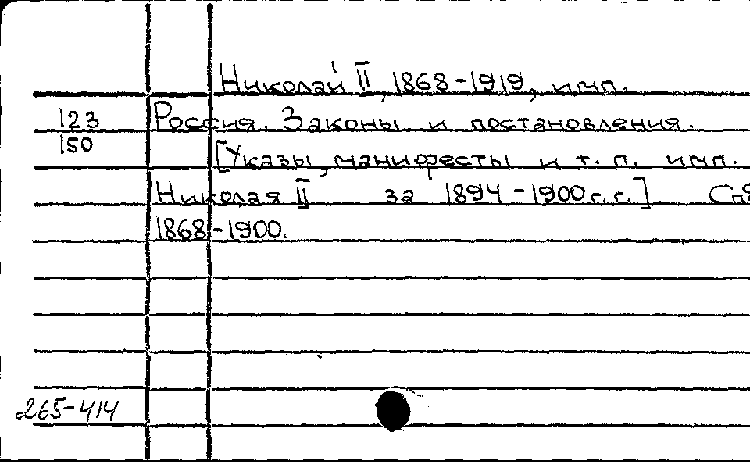 Николай II, 1868-1919, имп.
123 Россия. Законы и постановления.
150 [Указы, манифесты и т. п. имп.
Николая II за 1894-1900 г.г.]
1868-1900.
265-414